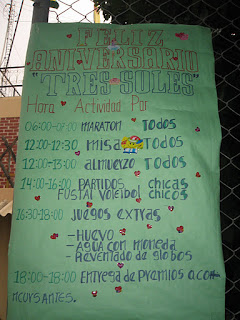 FELIZ
ANIVERSARIO
"TRES SOLES"
Hora Actividad Por
06:00-07:00 MARATON TODOS
12:00-12:30 misa TODOS
12:00-13:00 almuerzo TODOS
14:00-16:00 PARTIDOS chicas
FUSTAL VOLEIBOL chicos
16:30-18:00 JUEGOS EXTRAS
-HUEVO
-AGUA CON MONEDA
-REVENTADO DE GLOBOS
18:00-18:00 ENTREGA de PREMIOS A CO
NCURSANTES.